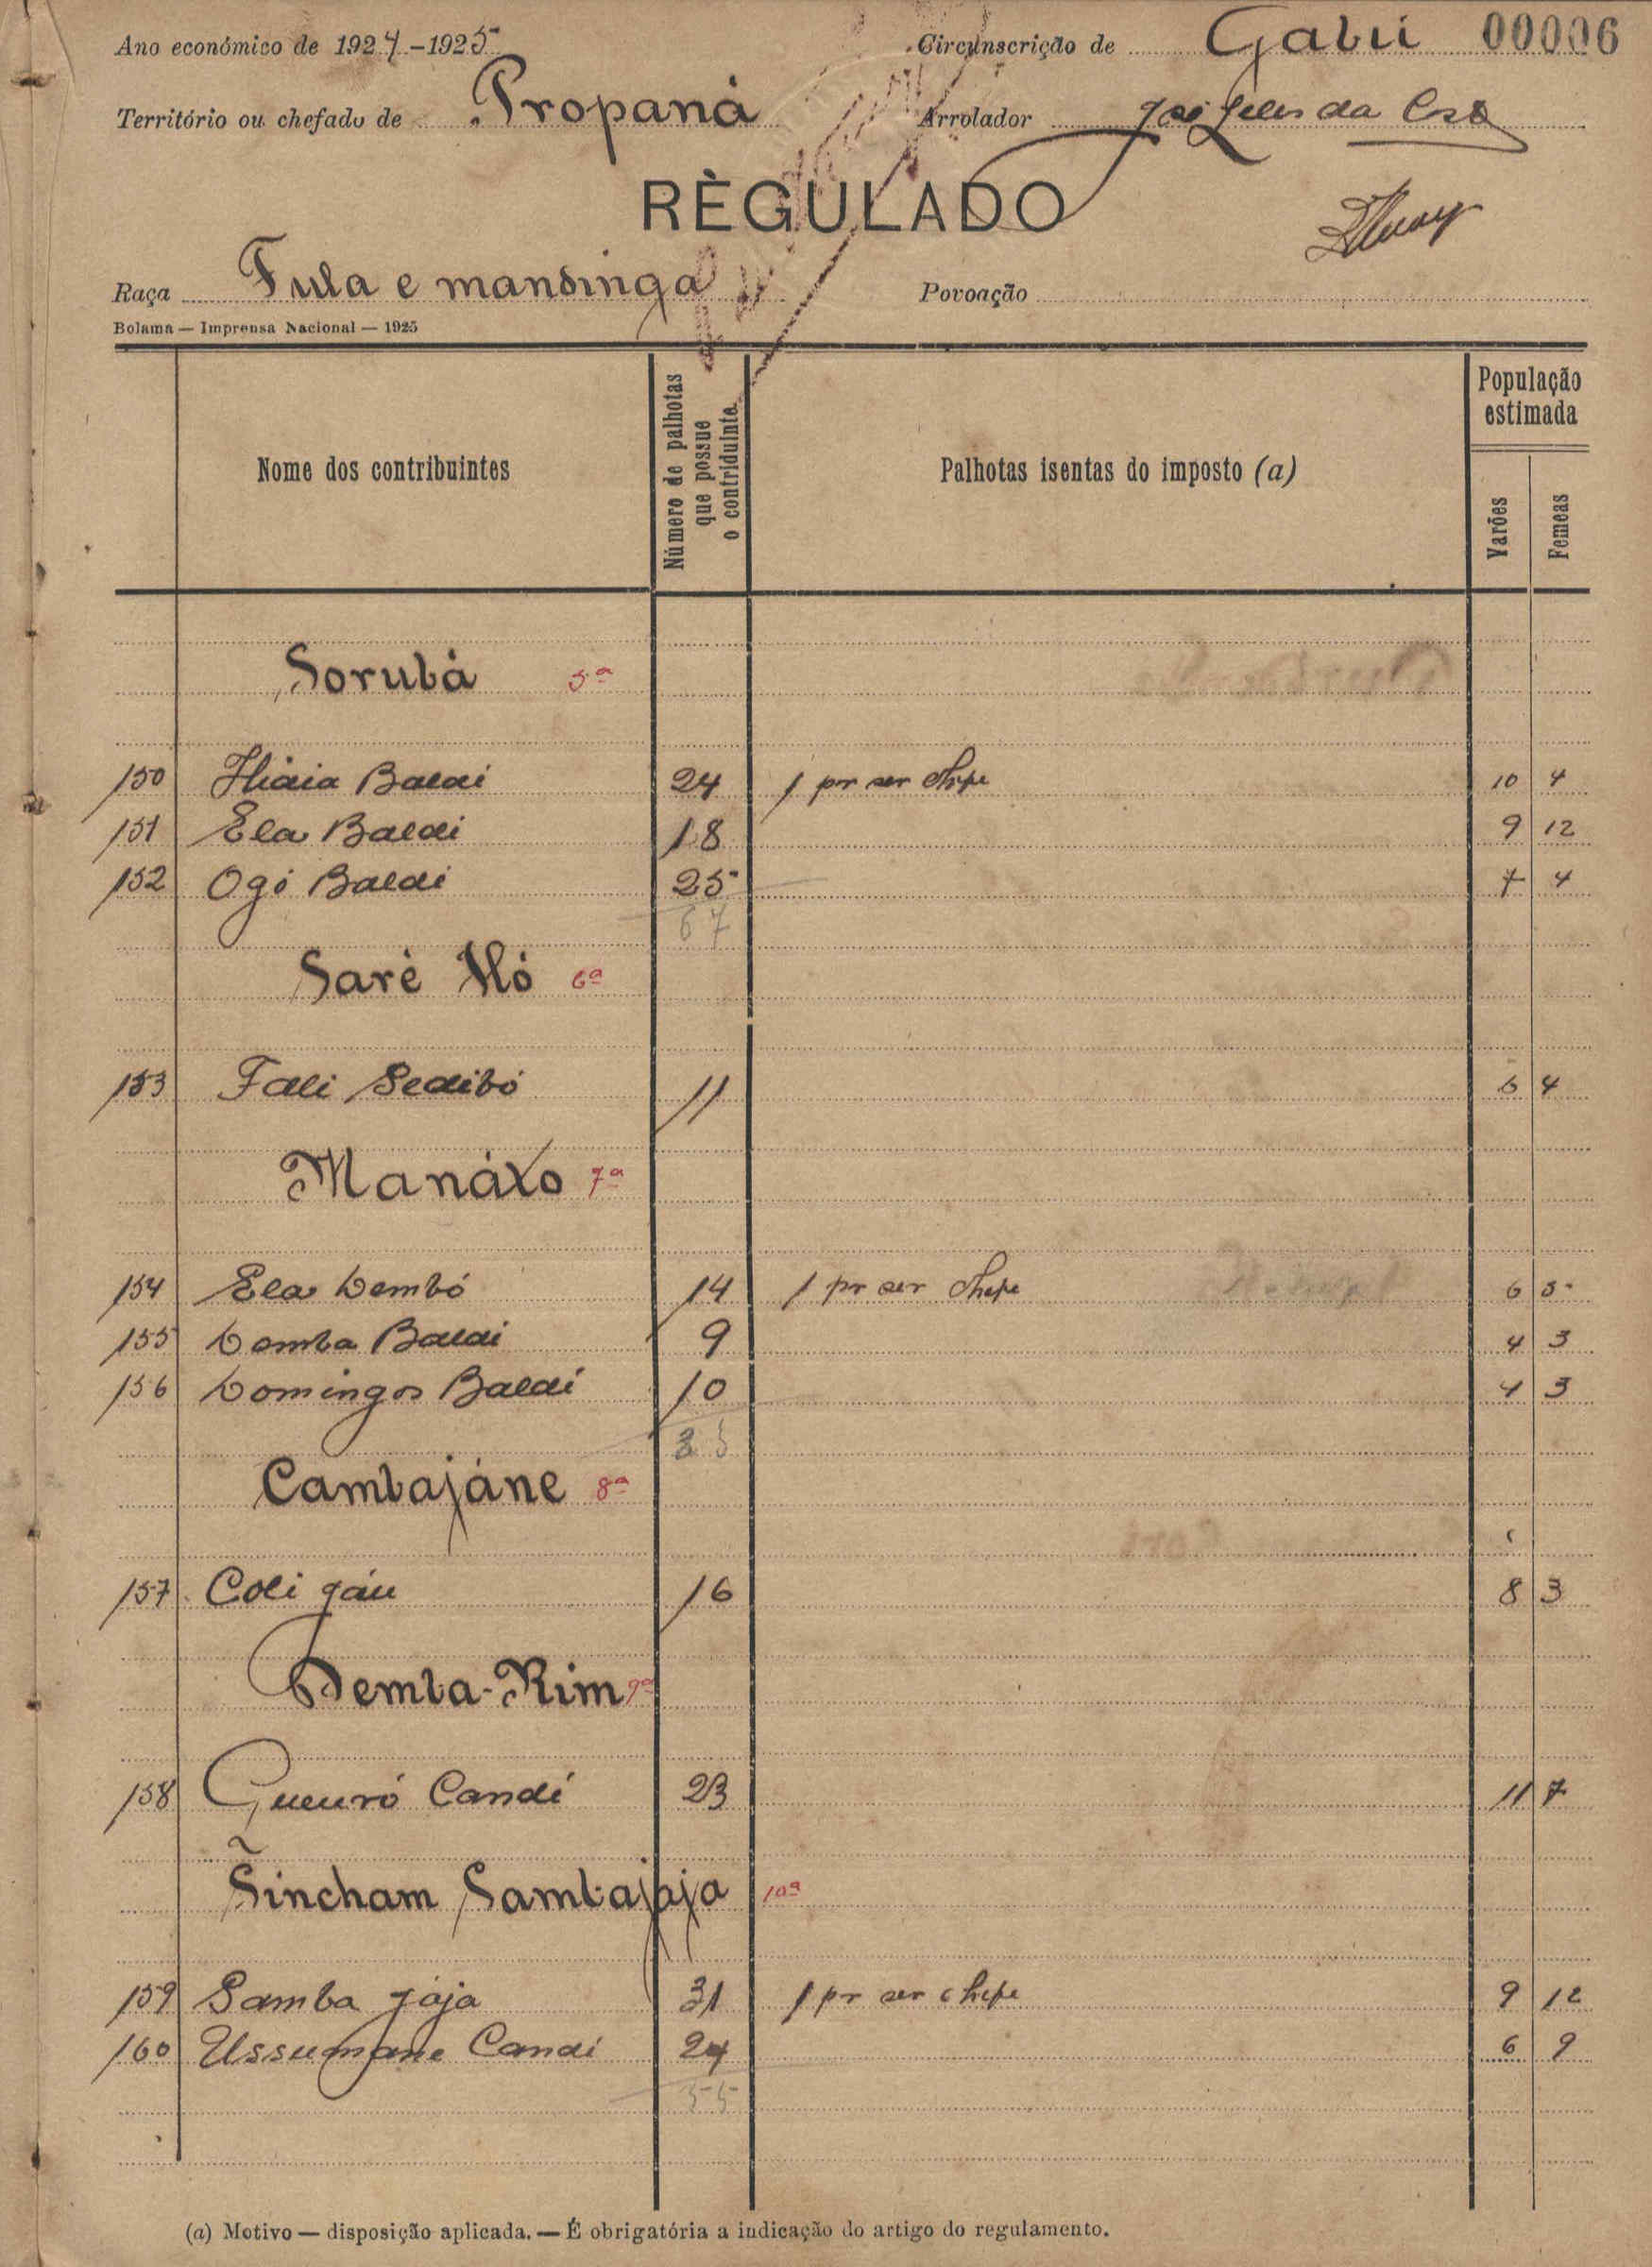 Ano económico de 1924-1925 Circunscrição de Gabú 00006
Território ou chefado de Propaná Arrolador da Costa
RÈGULADO
Raça Fula e mandinga Povoação
Bolama — Imprensa Nacional — 1925
Nome dos contribuintes
Número de palhotas
que possue
o contriduinte
Palhotas isentas do imposto (a)
População
estimada
Varões
Femeas
Sorubá 5ª
150 Baldi 24 1 por ser Chefe 10 4
151 Ela Baldi 18 9 12
152 Ogó Baldi 25 7 4
67
Saré 6ª
153 Fali Sedibó 11 6 4
Manáxo 7ª
154 Ela Dembó 14 1 por ser Chefe 6 5
155 Demba Baldi 9 4 3
156 Domingos Baldi 10 4 3
33
Cambajáne 8ª
157 Coli Jáu 16 8 3
Demba-Rim 9ª
158 Candi 23 11 7
Sincham Sambajaja 10ª
159 Samba Jája 31 1 por ser chefe 9 12
160 Ussumane Candi 24 6 9
55
(a) Motivo — disposição aplicada. — É obrigatória a indicação do artigo do regulamento.